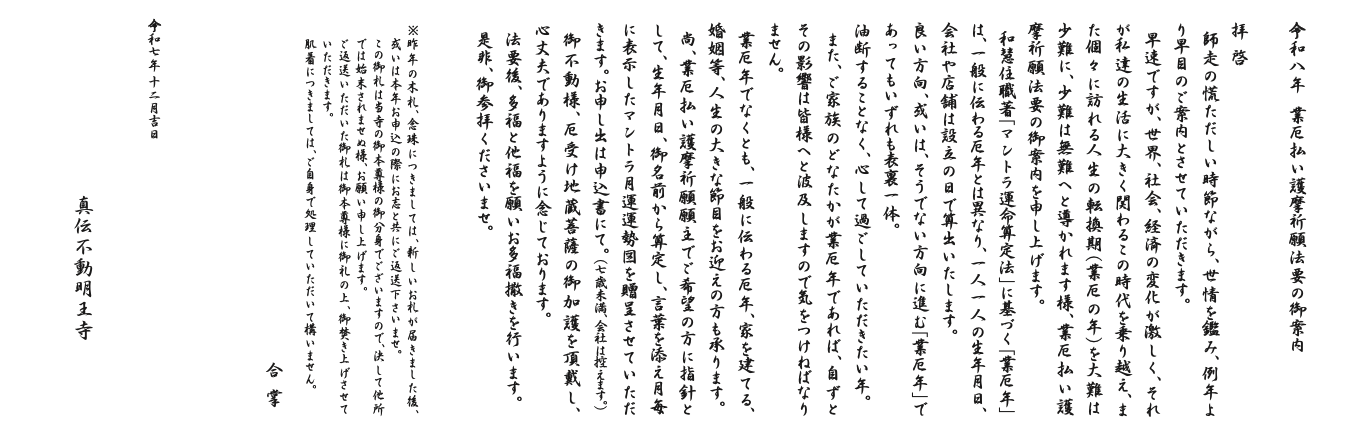 令和八年　業厄払い護摩祈願法要の御案内
拝啓
師走の慌ただしい時節ながら、世情を鑑み、例年よ
り早目のご案内とさせていただきます。
早速ですが、世界、社会、経済の変化が激しく、それ
が私達の生活に大きく関わるこの時代を乗り越え、ま
た個々に訪れる人生の転換期（業厄の年）を大難は
少難に、少難は無難へと導かれます様、業厄払い護
摩祈願法要の御案内を申し上げます。
和慧住職著「マントラ運命算定法」に基づく「業厄年」
は、一般に伝わる厄年とは異なり、一人一人の生年月日、
会社や店舗は設立の日で算出いたします。
良い方向、或いは、そうでない方向に進む「業厄年」で
あってもいずれも表裏一体。
油断することなく、心して過ごしていただきたい年。
また、ご家族のどなたかが業厄年であれば、自ずと
その影響は皆様へと波及しますので気をつけねばなり
ません。
業厄年でなくとも、一般に伝わる厄年、家を建てる、
婚姻等、人生の大きな節目をお迎えの方も承ります。
尚、業厄払い護摩祈願願主でご希望の方に指針と
して、生年月日、御名前から算定し、言葉を添え月毎
に表示したマントラ月運運勢図を贈呈させていただ
きます。お申し出は申込書にて。（七歳未満、会社は控えます。）
御不動様、厄受け地蔵菩薩の御加護を頂戴し、
心丈夫でありますように念じております。
法要後、多福と他福を願いお多福撒きを行います。
是非、御参拝くださいませ。
※昨年の木札、念珠につきましては、新しいお札が届きました後、
或いは本年お申込の際にお志と共にご返送下さいませ。
この御札は当寺の御本尊様の御分身でございますので、決して他所
では始末されませぬ様、お願い申し上げます。
ご返送いただいた御札は御本尊様に御礼の上、御焚き上げさせて
いただきます。
肌着につきましては、ご自身で処理していただいて構いません。
合掌
令和七年十二月吉日
真伝不動明王寺